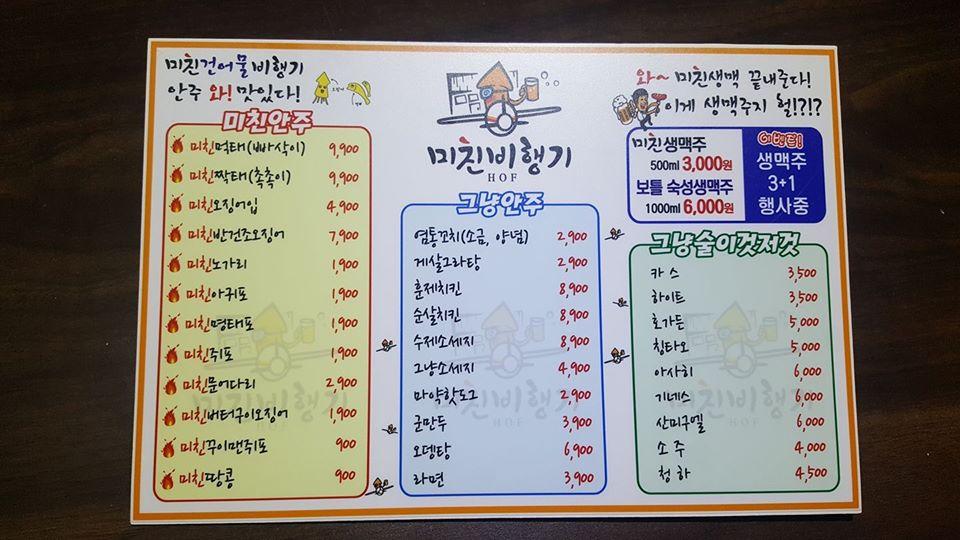 미친건어물비행기
안주 와! 맛있다!
미친안주
미친먹태(빠삭이) 9,900
미친짝태(촉촉이) 9,900
미친오징어입 4,900
미친반건조오징어 7,900
미친노가리 1,900
미친아귀포 1,900
미친명태포 1,900
미친쥐포 1,900
미친문어다리 2,900
미친버터구이오징어 1,900
미친꾸이맨쥐포 900
미친땅콩 900
미친비행기
HOF
그냥안주
염통꼬치(소금, 양념) 2,900
게살그라탕 2,900
훈제치킨 8,900
순살치킨 8,900
수제소세지 8,900
그냥소세지 4,900
마약핫도그 2,900
군만두 3,900
오뎅탕 6,900
라면 3,900
와~ 미친생맥 끝내준다!
이게 생맥주지 헐!?!?
미친생맥주
500ml 3,000원
보틀 숙성생맥주
1000ml 6,000원
생맥주
3+1
행사중
그냥술이것저것
카스 3,500
하이트 3,500
호가든 5,000
칭타오 5,000
아사히 6,000
기네스 6,000
산미구엘 6,000
소주 4,000
청하 4,500